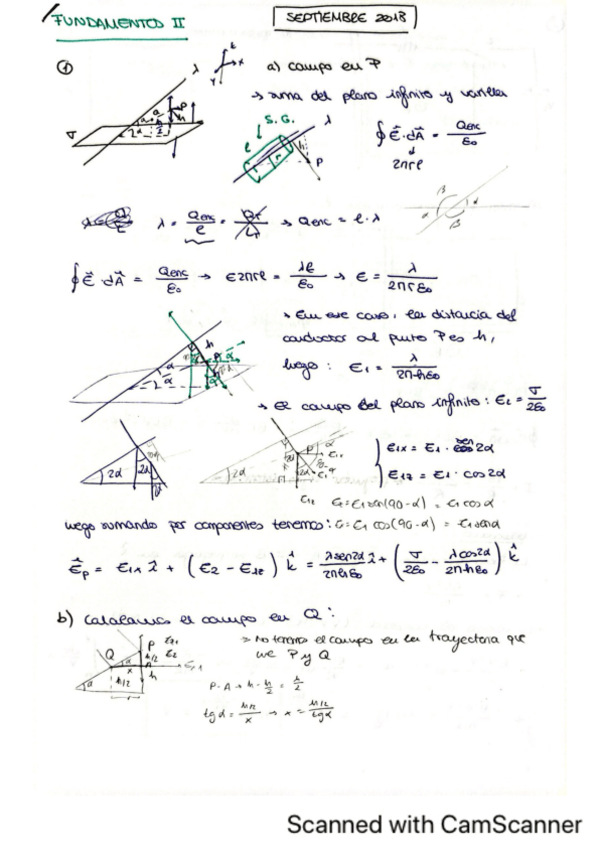 FUNDAMENTOS II
SEPTIEMBRE 2018
① a) campo en P
→ suma del plano infinito y varilla
S.G.
∮E⃗·dA⃗ = Qenc/ε₀
2πrl
λ = Qenc/l = → Qenc = l·λ
∮E⃗·dA⃗ = Qenc/ε₀ → E2πrl = λl/ε₀ → E = λ/2πrε₀
→ En ese caso, la distancia del
conductor al punto P es h,
luego: E₁ = λ/2πhε₀
→ El campo del plano infinito: E₂ = σ/2ε₀
E₁x = E₁ · sen 2α
E₁z = E₁ · cos 2α
E = E₁ sen(90-α) = E₁ cosα
luego sumando por componentes tenemos: E = E₁ cos(90-α) = E₁ senα
E⃗p = E₁x î + (E₂ - E₁z) k̂ = λsen2α/2πhε₀ î + (σ/2ε₀ - λcos2α/2πhε₀) k̂
b) Calculamos el campo en Q:
→ No tenemos el campo en la trayectoria que
une P y Q
P-A → h - h/2 = h/2
tgα = h/2/x → x = h/2/tgα
Scanned with CamScanner